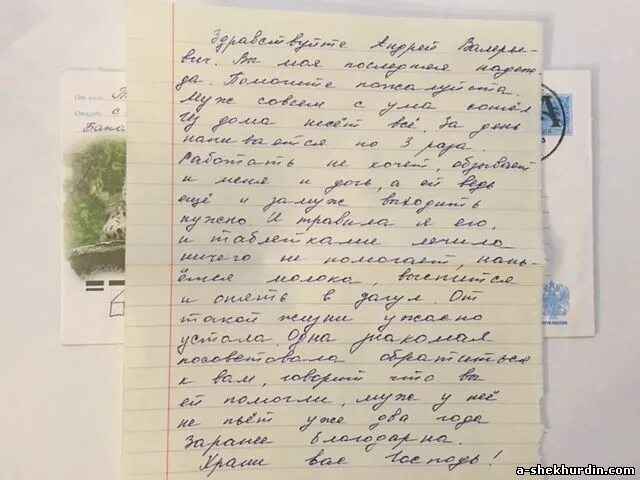 Здравствуйте Андрей Валерье-
вич. Вы моя последняя надеж-
да. Помогите пожалуйста.
Муж совсем с ума сошёл
Из дома несёт всё. За день
напивается по 3 раза.
Работать не хочет, обзывает
и меня и дочь, а ей ведь
ещё и замуж выходить
нужно. И травила я его,
и таблетками лечила
ничего не помогает, напь-
ётся молока, выспится
и опять в загул. От
такой жизни ужасно
устала. Одна знакомая
посоветовала обратиться
к вам, говорит что вы
ей помогли, муж у неё
не пьёт уже два года
Заранее благодарна.
Храни вас Господь!
От кого
Откуда
ПОЧТА РОССИИ
a-shekhurdin.com